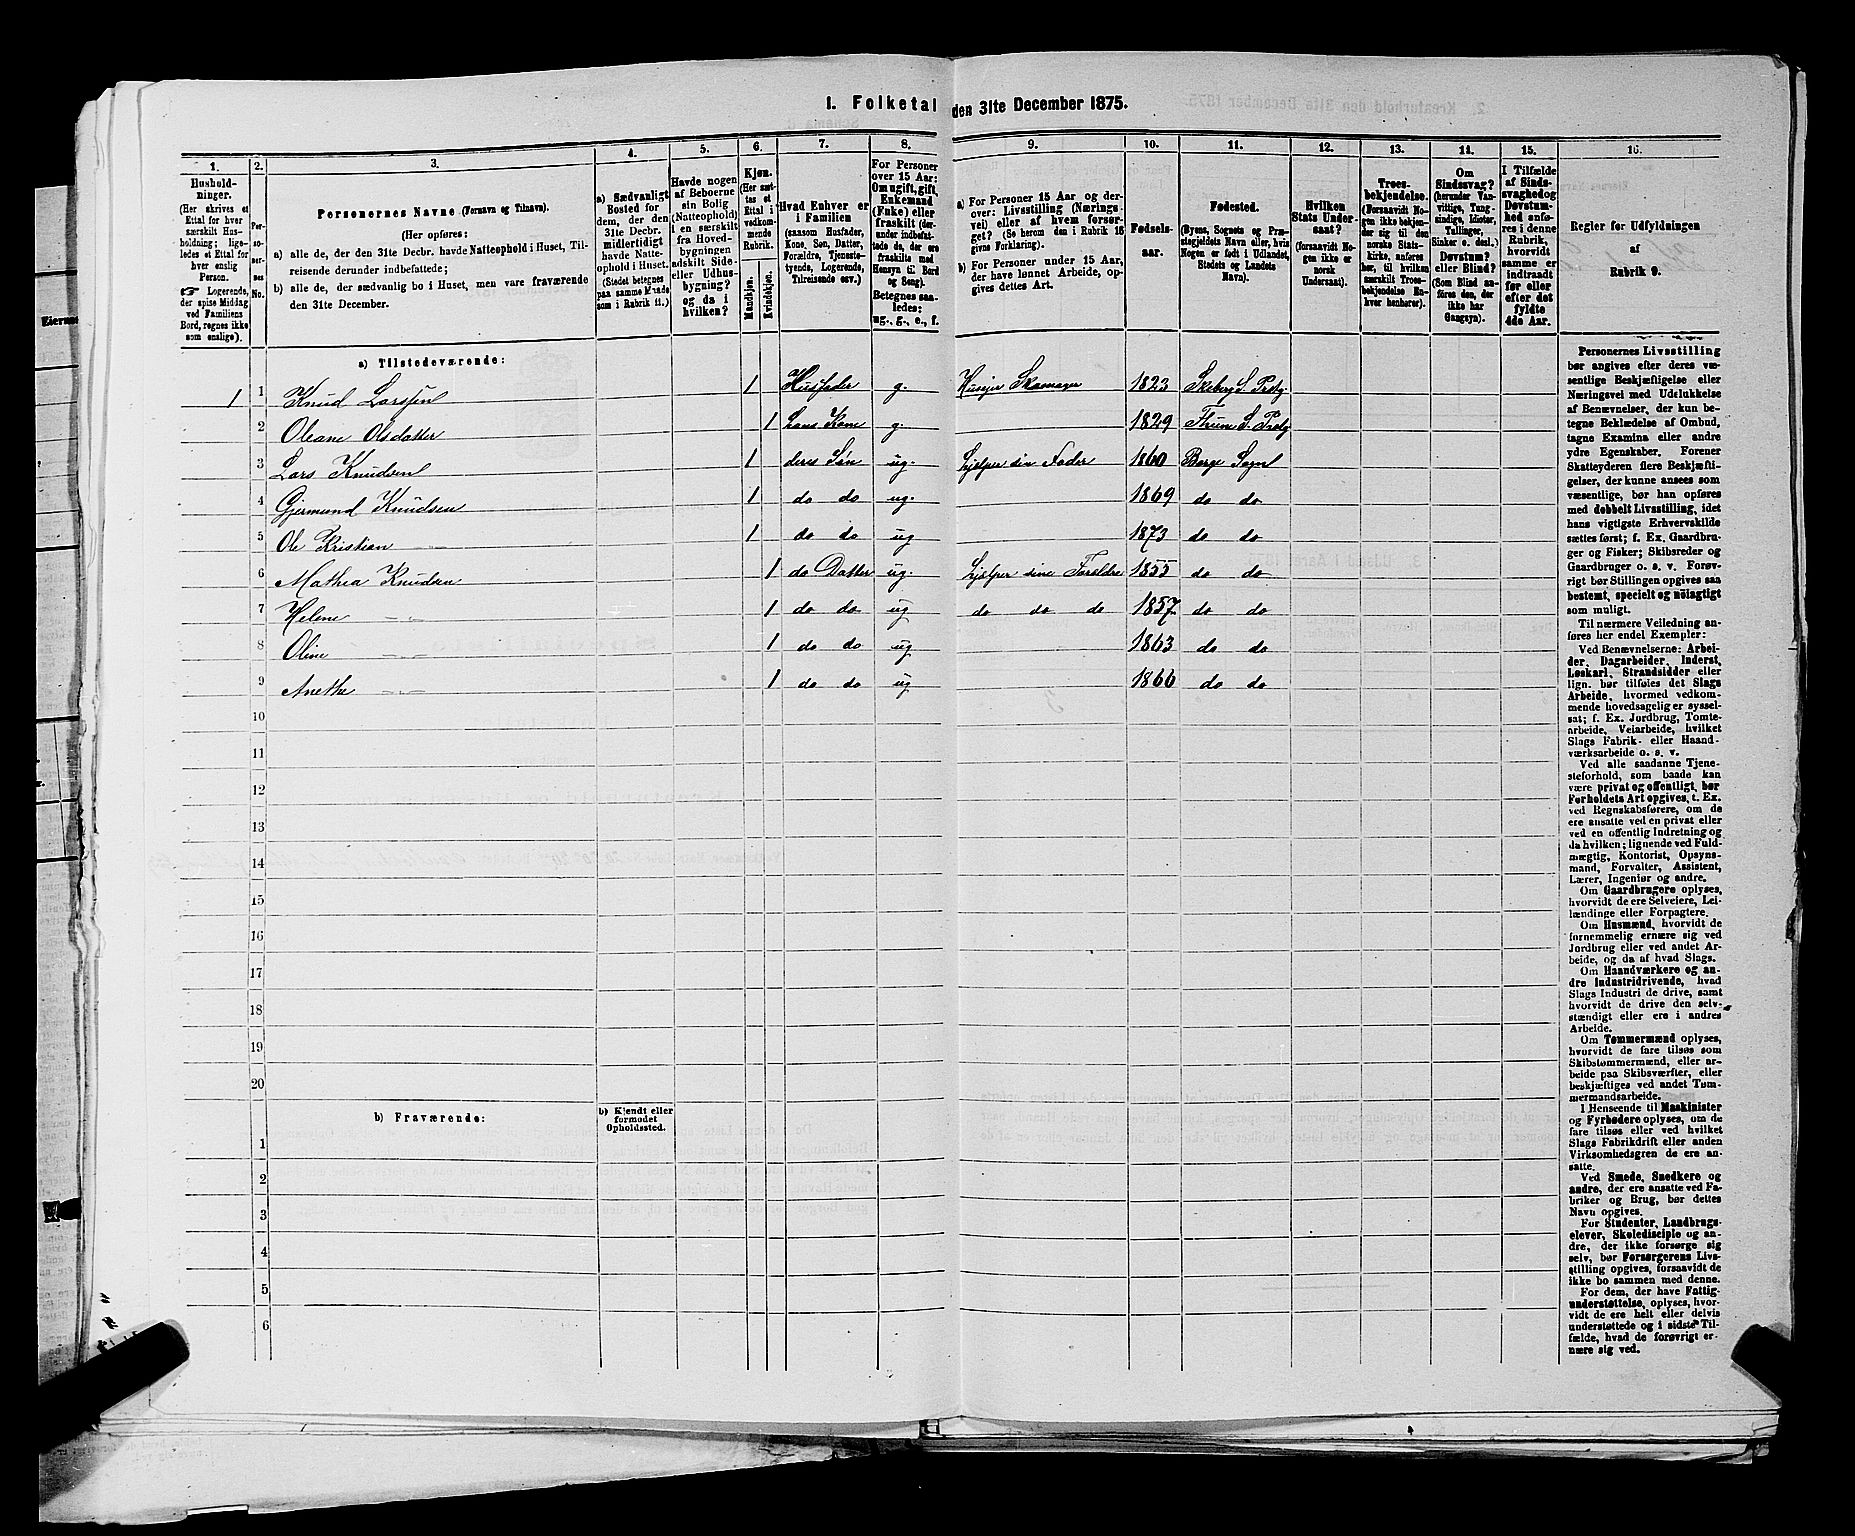 1. Folketal den 31te December 1875.
1. 2. 3. 4. 5. 6. 7. 8. 9. 10. 11. 12. 13. 14. 15. 16.
Hushold-
ninger.
(Her skrives et
Ettal for hver
særskilt Hus-
holdning; lige-
ledes et Ettal for
hver enslig
Person.
Logerende,
der spise Middag
ved Familiens
Bord, regnes ikke
som enslige).
Per-
so-
ner-
nes
No.
Personernes Navne (Fornavn og Tilnavn).
(Her opføres:
a) alle de, der den 31te Decbr. havde Natteophold i Huset, Til-
reisende derunder indbefattede;
b) alle de, der sædvanlig bo i Huset, men vare fraværende
den 31te December.
a) Sædvanligt
Bosted for
dem, der den
31te Decbr.
midlertidigt
havde Natte-
ophold i Huset.
(Stedet betegnes
paa samme Maade
som i Rubrik 11.)
Havde nogen
af Beboerne
sin Bolig
(Natteophold)
i en særskilt
fra Hoved-
bygningen
adskilt Side-
eller Udhus-
bygning?
og da i
hvilken?
Kjøn.
(Her sæt-
tes et
Ettal i
vedkom-
mende
Rubrik.
Mandkjøn.
Kvindekjøn.
Hvad Enhver er
i Familien
(saasom Husfader,
Kone, Søn, Datter,
Forældre, Tjeneste-
tyende, Logerende,
Tilreisende osv.)
For Personer
over 15 Aar:
Om ugift, gift,
Enkemand
(Enke) eller
fraskilt (der-
under indbefat-
tede de, der ere
fraskilte med
Hensyn til Bord
og Seng).
Betegnes saa-
ledes:
ug., g., e., f.
a) For Personer 15 Aar og der-
over: Livsstilling (Nærings-
vei) eller af hvem forsør-
get? (Se herom den i Rubrik 16
givne Forklaring).
b) For Personer under 15 Aar,
der have lønnet Arbeide, op-
gives dettes Art.
Fødsels-
aar.
Fødested.
(Byens, Sognets og Præ-
stegjeldets Navn eller, hvis
Nogen er født i Udlandet,
Stedets og Landets
Navn).
Hvilken
Stats Under-
saat?
(forsaavidt No-
gen ikke er
norsk
Undersaat).
Troes-
bekjendelse.
(Forsaavidt No-
gen ikke bekjen-
der sig til den
norske Stats-
kirke, anføres
her, til hvilken
særskilt Troes-
bekjendelse En-
hver henhører).
Om
Sindssvag?
(herunder Van-
vittige, Tung-
sindige, Idioter,
Tullinger,
Sinker o. desl.)
Døvstum?
eller Blind?
(Som Blind an-
føres den, der
ikke har
Gangsyn).
I Tilfælde
af Sinds-
svaghed og
Døvstum-
hed anfø-
res i denne
Rubrik,
hvorvidt
samme er
indtraadt
før eller
efter det
fyldte
4de Aar.
Regler for Udfyldningen
af
Rubrik 9.
a) Tilstedeværende:
1 1 Knud Larssen 1 Husfader g. Huseier Skomager 1823 Skeberg S. Prstg.
2 Oleane Olsdatter 1 hans Kone g. 1829 Thune S. Prstg
3 Lars Knudsen 1 deres Søn ug. hjælper sin Fader 1860 Borge Sogn
4 Gjermund Knudsen 1 do do ug. 1869 do do
5 Ole Kristian — „ — 1 do do ug 1873 do do
6 Mathea Knudsen 1 do Datter ug. hjælper sine Forældre 1855 do do
7 Helene — „ — 1 do do ug do do do 1857 do do
8 Oline — „ — 1 do do ug 1863 do do
9 Anethe — „ — 1 do do ug 1866 do do
10
11
12
13
14
15
16
17
18
19
20
b) Fraværende: b) Kjendt eller
formodet
Opholdssted.
1
2
3
4
5
6
Personernes Livsstilling
bør angives efter deres væ-
sentlige Beskjæftigelse eller
Næringsvei med Udelukkelse
af Benævnelser, der kun be-
tegne Beklædelse af Ombud,
tagne Examina eller andre
ydre Egenskaber. Forener
Skatteyderen flere Beskjæfti-
gelser, der kunne ansees som
væsentlige, bør han opføres
med dobbelt Livsstilling, idet
hans vigtigste Erhvervskilde
sættes først; f. Ex. Gaardbru-
ger og Fisker; Skibsreder og
Gaardbruger o. s. v. Forøv-
rigt bør Stillingen opgives saa
bestemt, specielt og nøiagtigt
som muligt.
Til nærmere Veiledning an-
føres her endel Exempler:
Ved Benævnelserne: Arbei-
der, Dagarbeider, Inderst,
Løskarl, Strandsidder eller
lign. bør tilføies det Slags
Arbeide, hvormed vedkom-
mende hovedsagelig er syssel-
sat; f. Ex. Jordbrug, Tomte-
arbeide, Veiarbeide, hvilket
Slags Fabrik- eller Haand-
værksarbeide o. s. v.
Ved alle saadanne Tjene-
steforhold, som baade kan
være privat og offentligt, bør
Forholdets Art opgives, t. Ex.
ved Regnskabsførere, om de
ere ansatte ved en privat eller
ved en offentlig Indretning og
da hvilken; lignende ved Fuld-
mægtig, Kontorist, Opsyns-
mand, Forvalter, Assistent,
Lærer, Ingeniør og andre.
Om Gaardbrugere oplyses,
hvorvidt de ere Selveiere, Lei-
lændinge eller Forpagtere.
Om Husmænd, hvorvidt de
fornemmelig ernære sig ved
Jordbrug eller ved andet Ar-
beide, og da af hvad Slags.
Om Haandværkere og an-
dre Industridrivende, hvad
Slags Industri de drive, samt
hvorvidt de drive den selv-
stændigt eller ere i andres
Arbeide.
Om Tømmermænd oplyses,
hvorvidt de fare tilsøs som
Skibstømmermænd, eller ar-
beide paa Skibsværfter, eller
beskjæftiges ved andet Tøm-
mermandsarbeide.
I Henseende til Maskinister
og Fyrbødere oplyses, om de
fare tilsøs eller ved hvilket
Slags Fabrikdrift eller anden
Virksomhedsgren de ere an-
satte.
Ved Smede, Snedkere og
andre, der ere ansatte ved Fa-
briker og Brug, bør dettes
Navn opgives.
For Studenter, Landbrugs-
elever, Skoledisciple og an-
dre, der ikke forsørge sig
selv, bør Forsørgerens Livs-
stilling opgives, forsaavidt de
ikke bo sammen med denne.
For dem, der have Fattig-
understøttelse, oplyses, hvor-
vidt de ere helt eller delvis
understøttede og i sidste Til-
fælde, hvad de forøvrigt er-
nære sig ved.